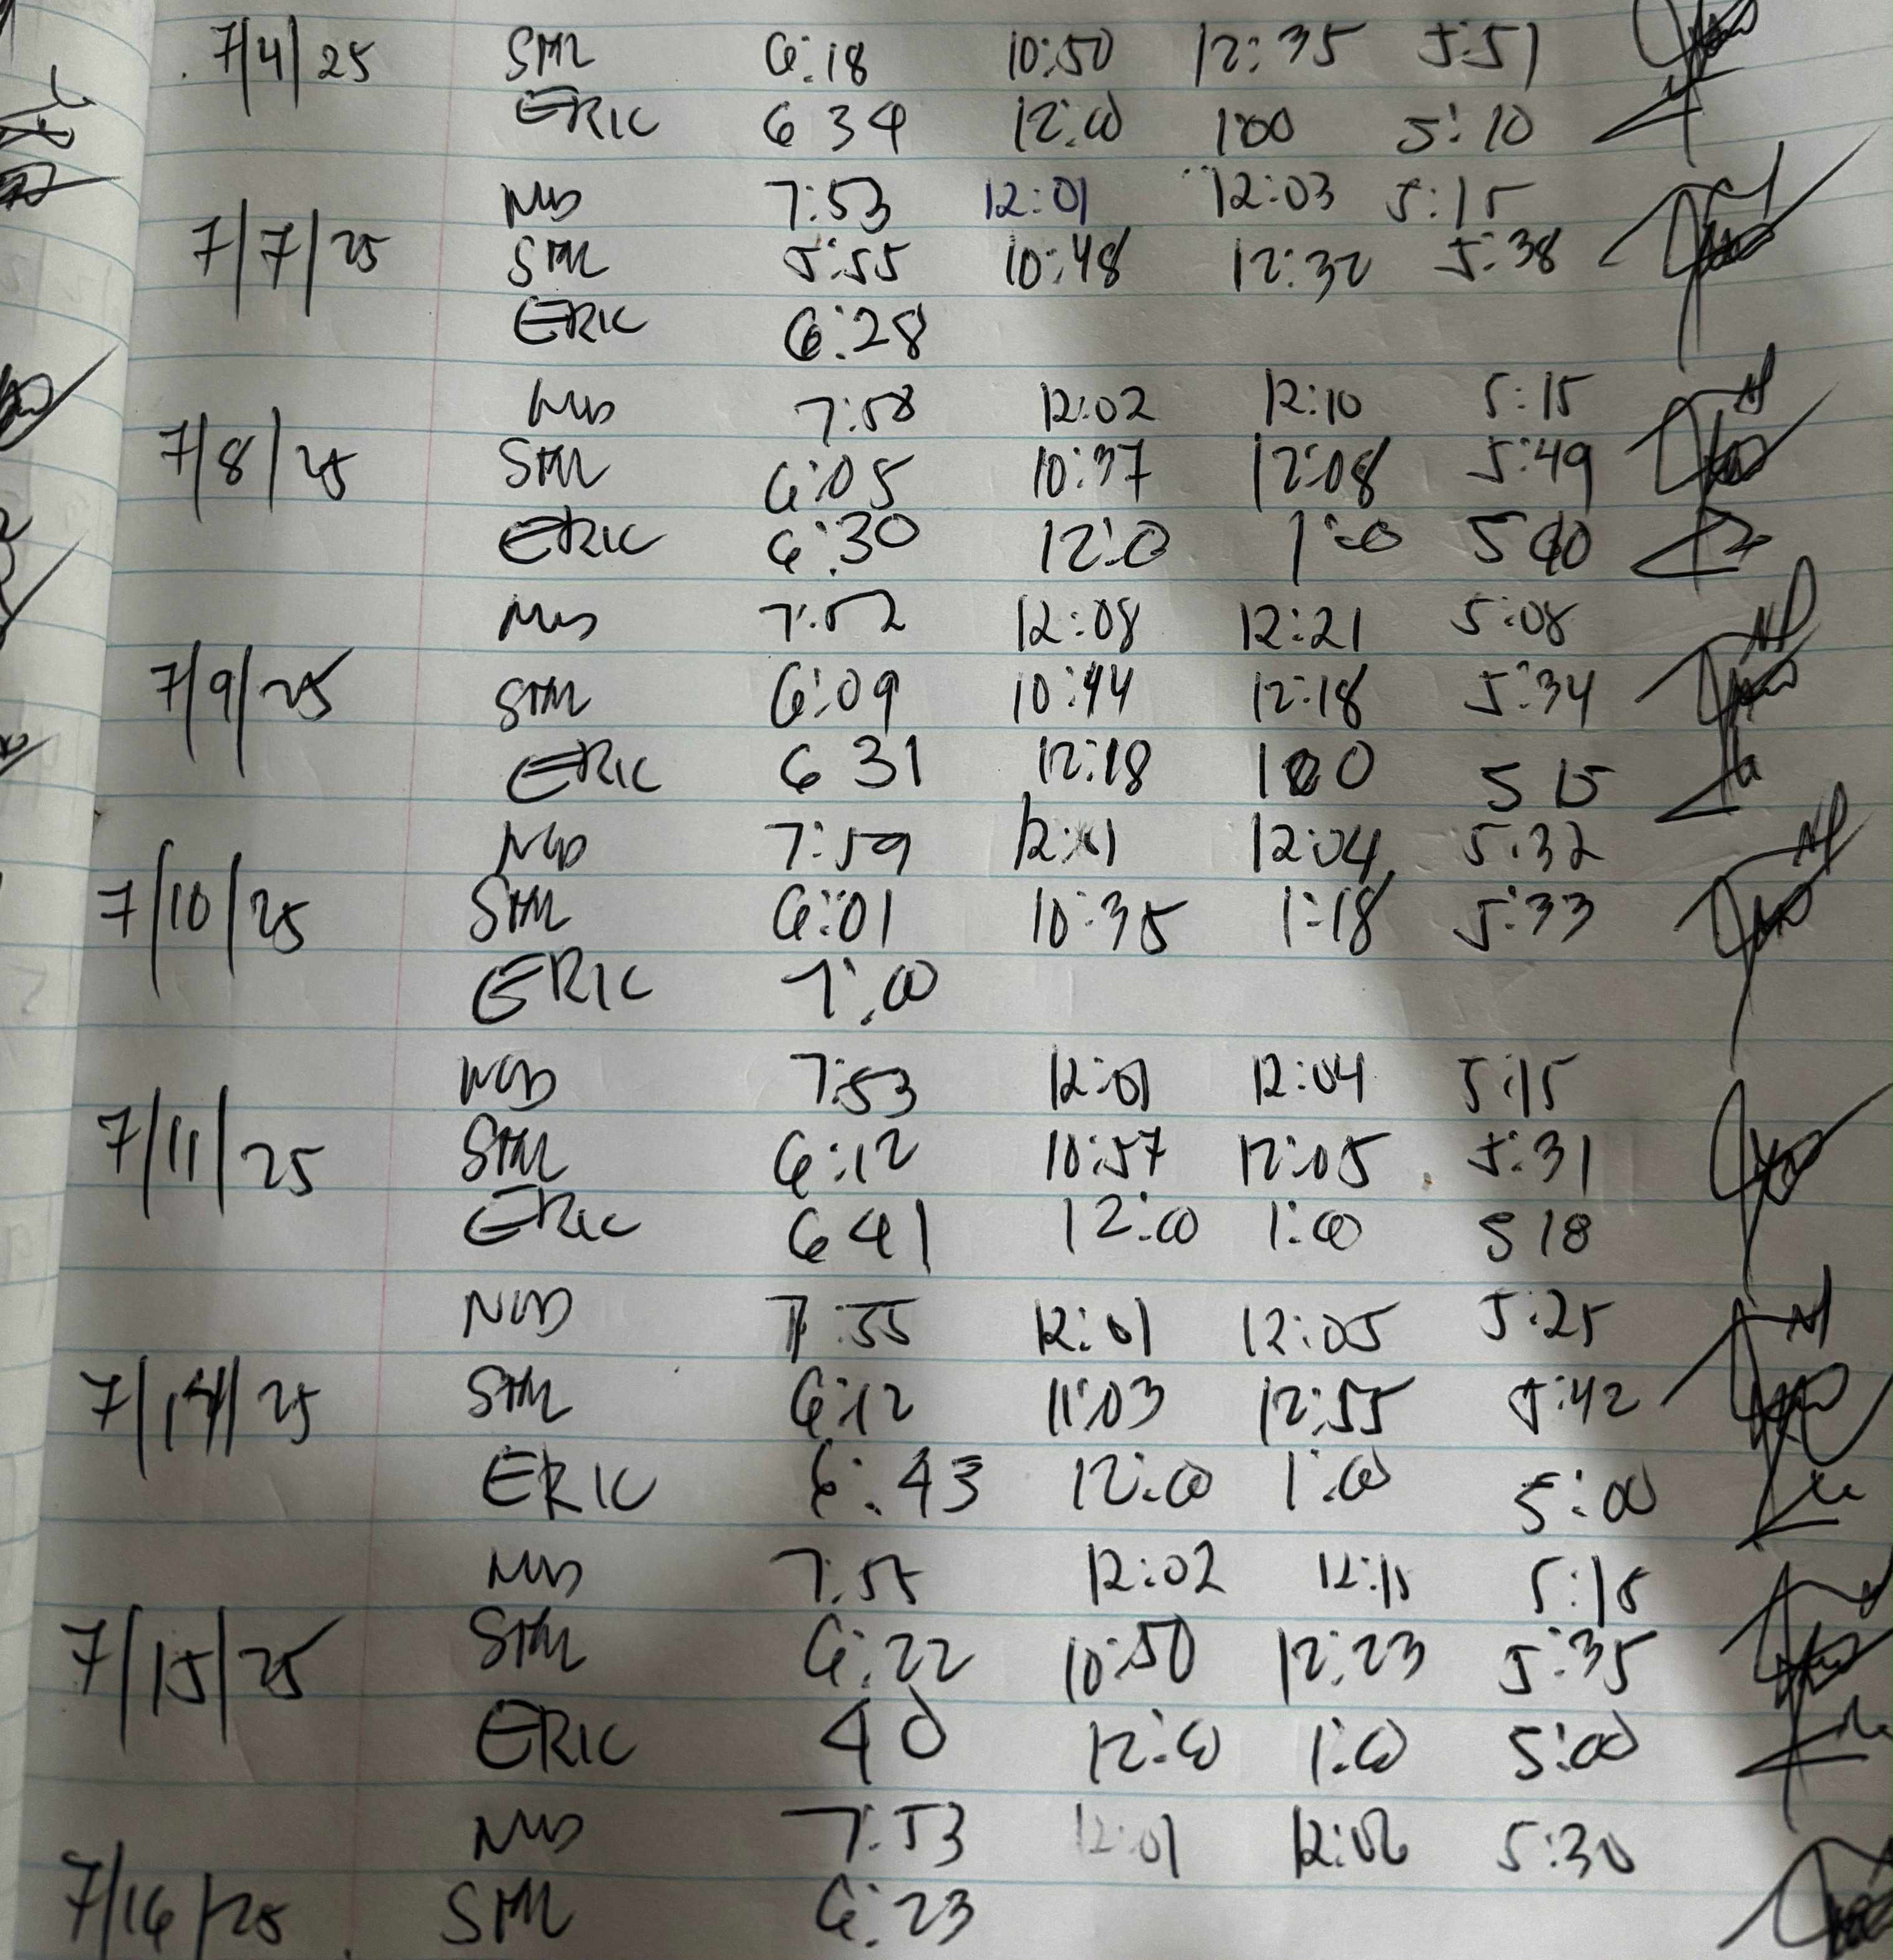 7/4/25 STM 6:18 10:50 12:35 5:51
ERIC 6 34 12:00 1:00 5:10
NUD 7:53 12:01 12:03 5:15
7/7/25 STM 5:55 10:48 12:32 5:38
ERIC 6:28
NUD 7:58 12:02 12:10 5:15
7/8/25 STM 6:05 10:37 12:08 5:49
ERIC 6:30 12:0 1:0
NUD 7:52 12:08 12:21 5:08
7/9/25 STM 6:09 10:44 12:18 5:34
ERIC 6 31 12:18 100 5 15
NUD 7:59 12:01 12:04 5:32
7/10/25 STM 6:01 10:35 1:18 5:33
ERIC 7:00
NUD 7:53 12:01 12:04 5:15
7/11/25 STM 6:12 10:57 12:05 5:31
ERIC 6 41 12:00 1:00 5 18
NUD 7:55 12:01 12:05 5:25
7/14/25 STM 6:12 11:03 12:55 5:42
ERIC 6:43 12:00 1:00 5:00
NUD 7:55 12:02 12:11 5:15
7/15/25 STM 6:22 10:50 12:23 5:35
ERIC 40 12:00 1:00 5:00
NUD 7:53 12:01 12:06 5:30
7/16/25 STM 6:23